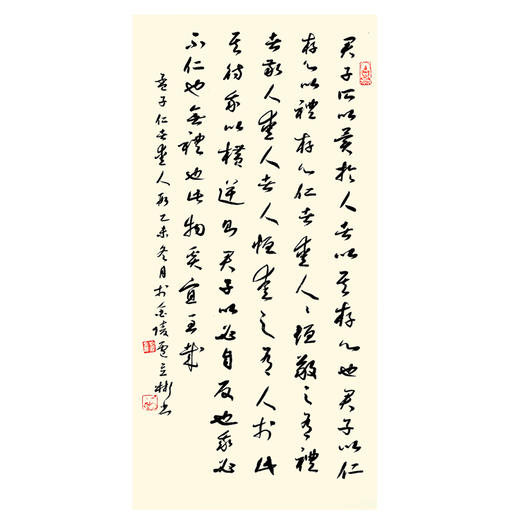 君子所以異於人者以其存心也君子以仁
存心以禮存心仁者愛人々恒敬之有禮
者敬人愛人者人恒愛之有人於此
其待我以橫逆則君子以必自反也我必
不仁也無禮也此物奚宜至哉
孟子仁者愛人 乙未冬月於金陵 立彬書